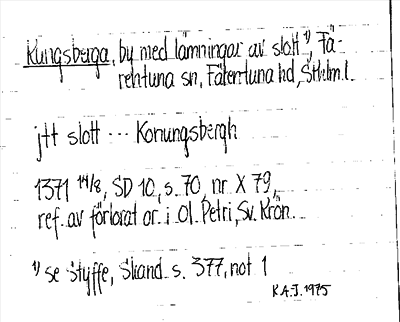 Kungsberga, by med lämningar av slott 1), Fä-
rentuna sn, Färentuna hd, Sthlm.l.
jtt slott --- Konungsbergh
1371 14/8, SD 10, s. 70, nr. X 79,
ref. av förlorat or. i Ol. Petri, Sv. Krön.
1) se Styffe, Skand. s. 377, not 1
K.A.J. 1975